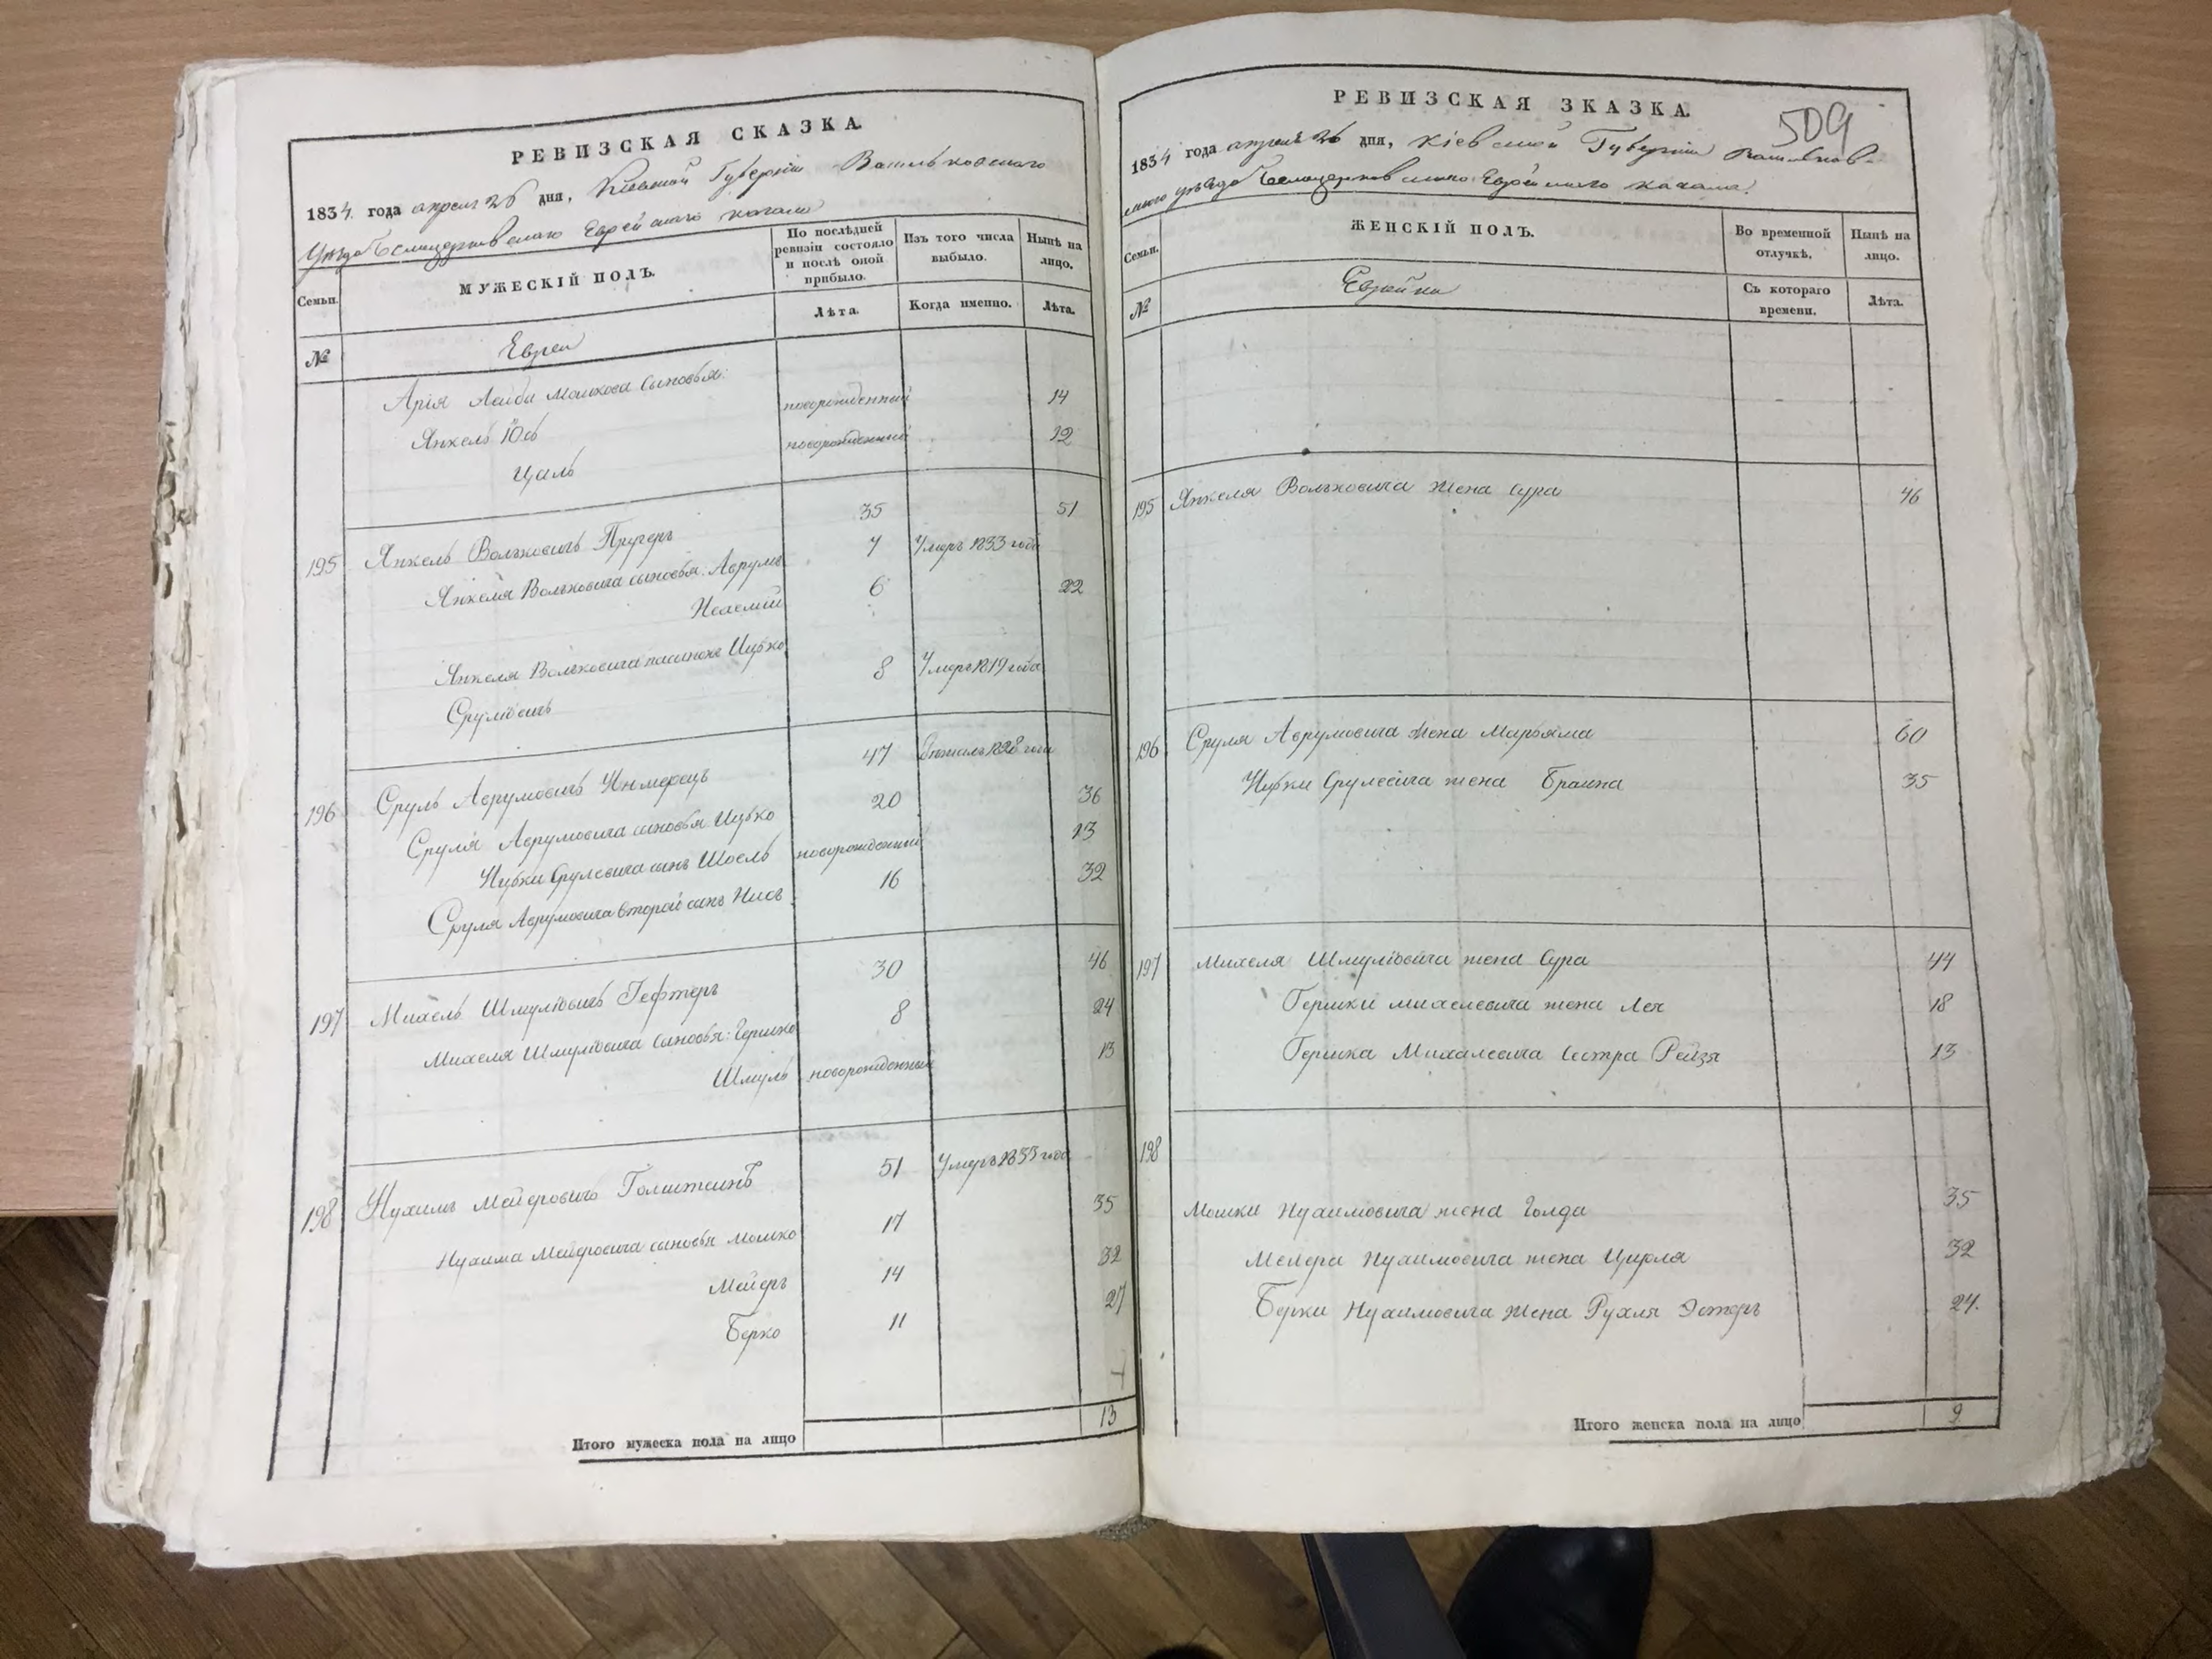 РЕВИЗСКАЯ СКАЗКА
1834 года апреля 26 дня, Киевской Губернии Васильковского
Уезда Белоцерковского Еврейского кагала
Семьи.
МУЖЕСКІЙ ПОЛЪ.
По послѣдней ревизіи состояло и послѣ оной прибыло.
Изъ того числа выбыло.
Нынѣ на лицо.
№
Лѣта.
Когда именно.
Лѣта.
Евреи
Арія Лейби Мошкова сыновья:
Янкель Юсь новорожденный 14
Цаль новорожденный 12
195 Янкель Вольковичъ Пругеръ 35 51
Янкеля Вольковича сыновья: Аврумъ 7 Умеръ 1833 года
Нехемій 6 22
Янкеля Вольковича пасынокъ Ицько
Срулiовичъ 8 Умеръ 1819 года
196 Сруль Аврумовичъ 47 1828 года
Сруля Аврумовича сыновья Ицько 20 36
Ицьки Срулевича сынъ Шоель новорожденный 13
Сруля Аврумовича второй сынъ Нисъ 16 32
197 Михель Шмулiовичъ Гефтеръ 30 46
Михеля Шмулiовича сыновья: Гершко 8 24
Шмуль новорожденный 13
198 Нухимъ Мейеровичъ Голштейнъ 51 Умеръ 1833 года
Нухима Мейеровича сыновья Мошко 17 35
Мейеръ 14 32
Берко 11 27
Итого мужеска пола на лицо 13
РЕВИЗСКАЯ ЗКАЗКА.
509
1834 года апреля 26 дня, Кіевской Губерніи Васильков-
ского уѣзда Белоцерковского Еврейского кагала.
Семьи.
ЖЕНСКІЙ ПОЛЪ.
Во временной отлучкѣ.
Нынѣ на лицо.
№
Еврейки
Съ котораго времени.
Лѣта.
195 Янкеля Вольковича жена Сура 46
196 Сруля Аврумовича жена Марьяма 60
Ицьки Срулевича жена Браина 35
197 Михеля Шмулiовича жена Сура 44
Гершки Михелевича жена Лея 18
Гершка Михалевича сестра Рейзя 13
198
Мошки Нухимовича жена Голда 35
Мейера Нухимовича жена Цирля 32
Берки Нухимовича жена Рухля Эстеръ 24.
Итого женска пола на лицо 9